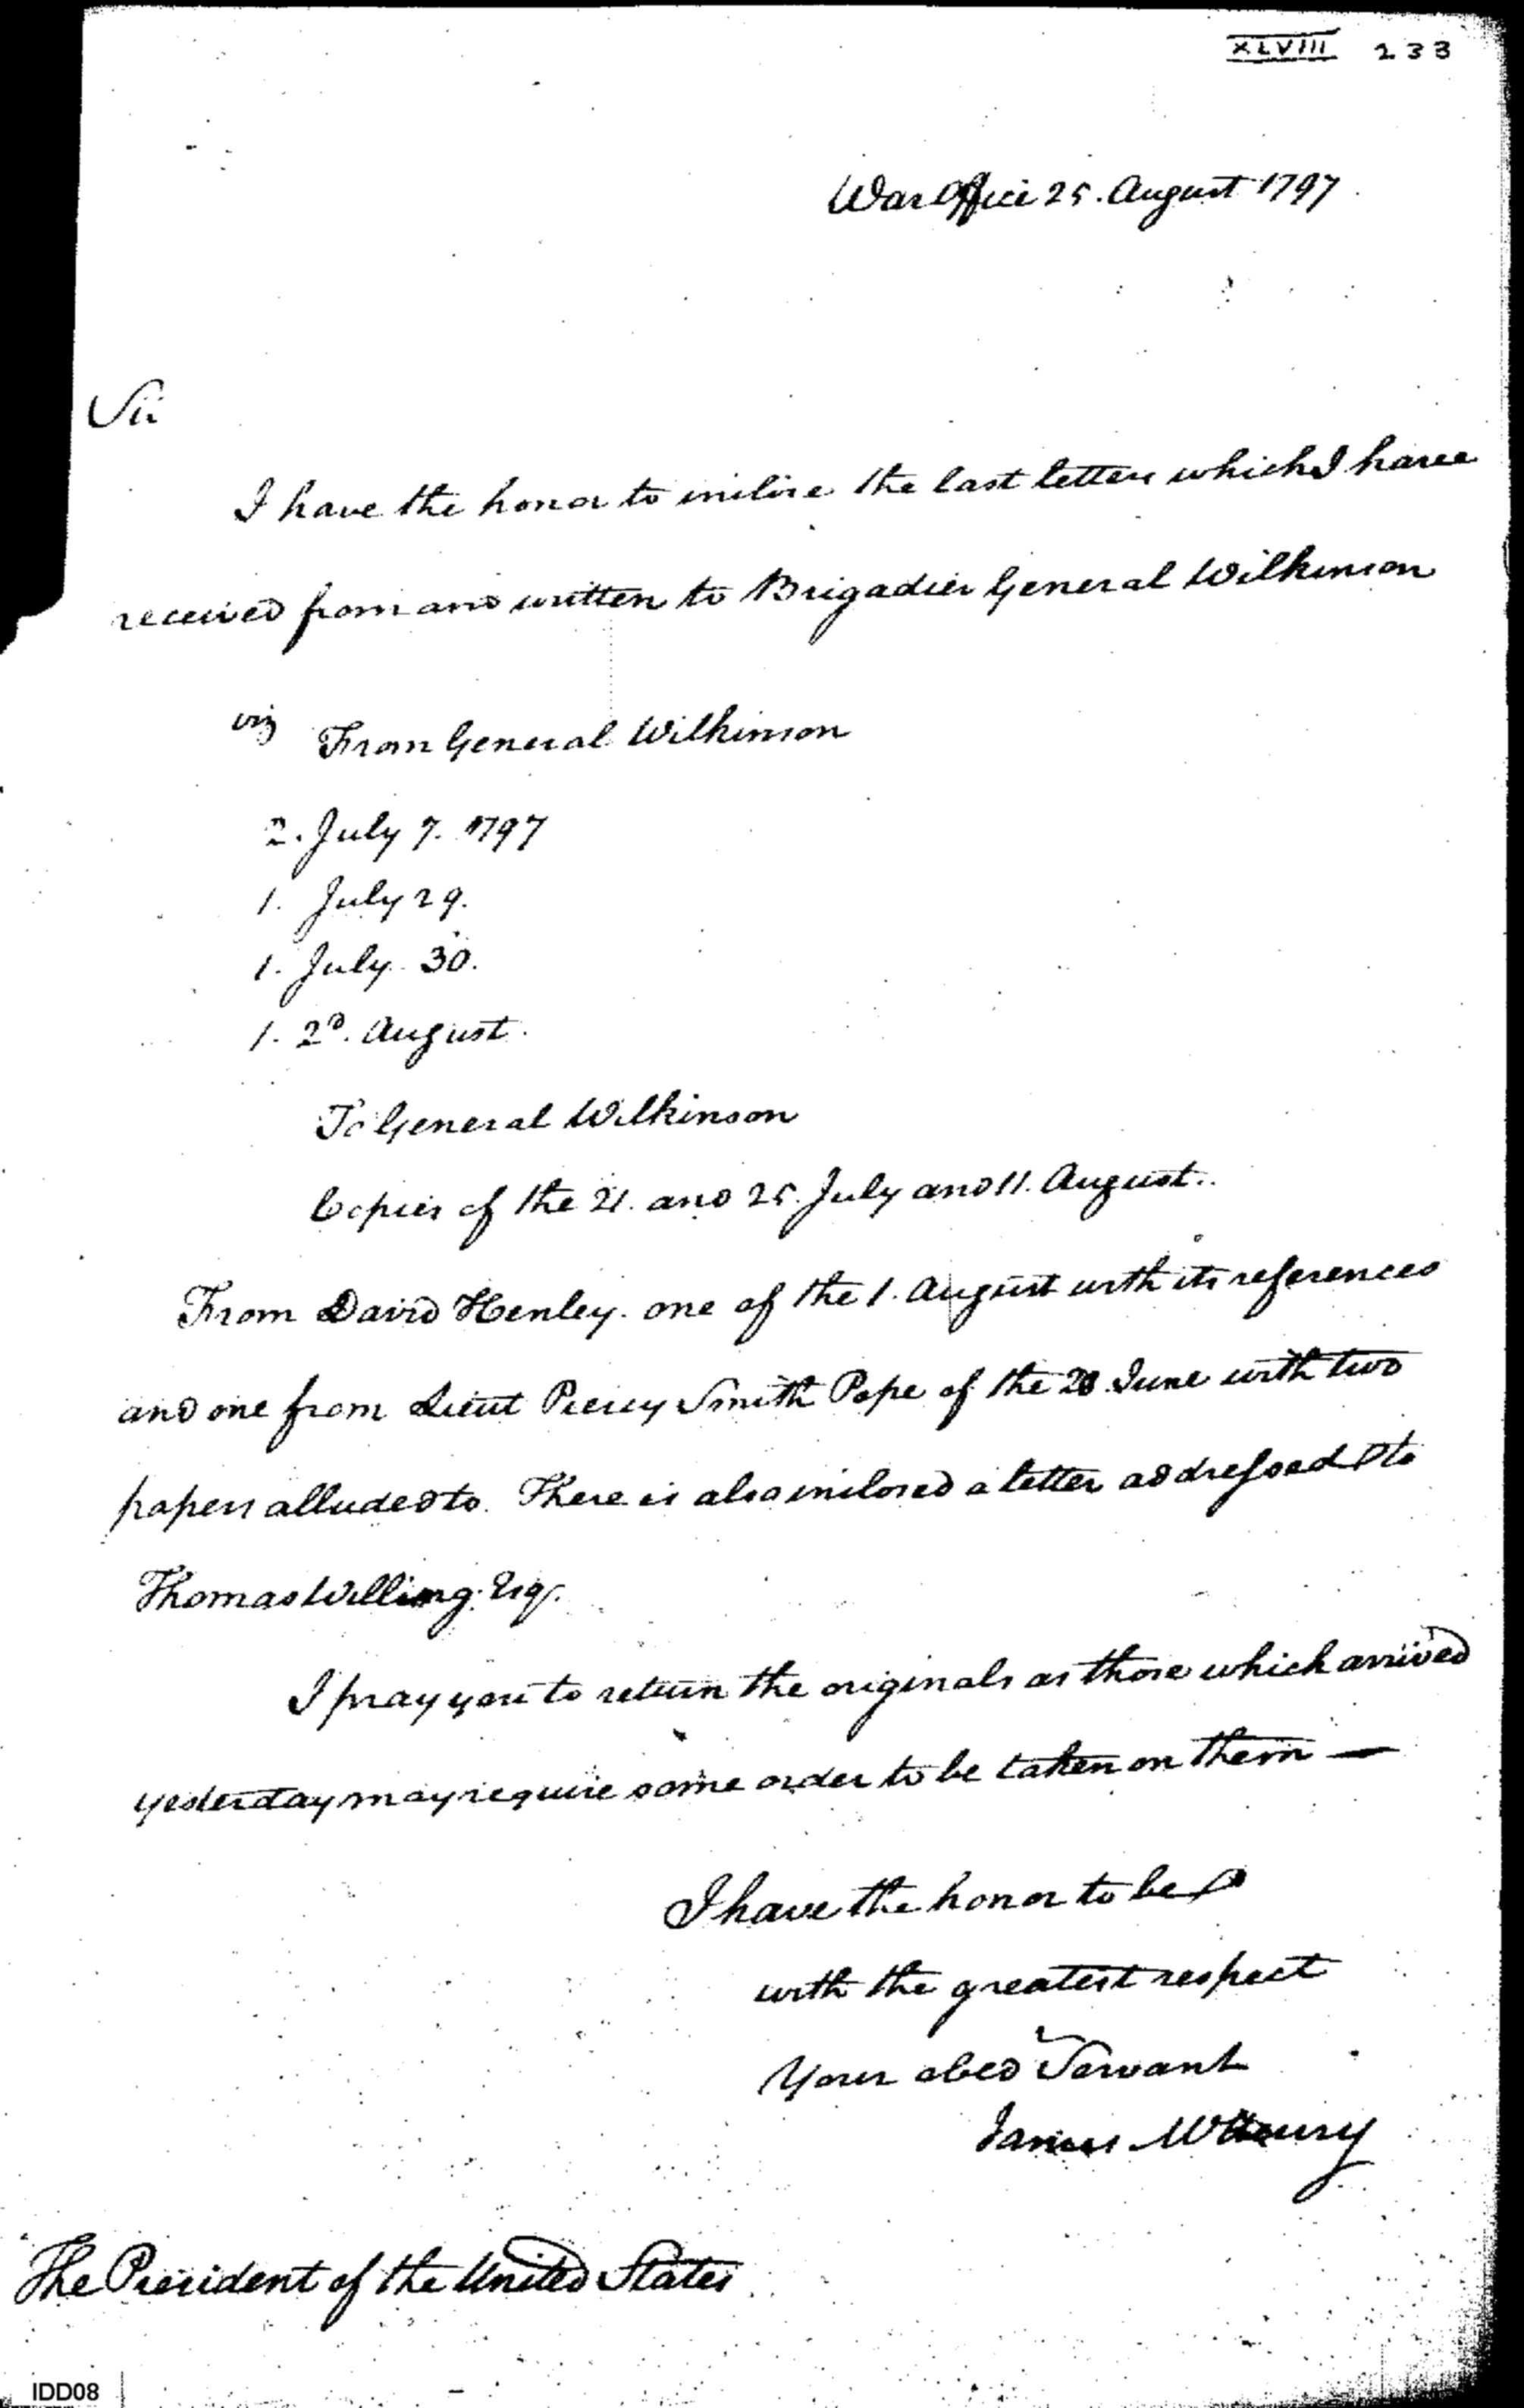 XLVIII 233
War Office 25. August 1797
Sir
I have the honor to inclose the last letters which I have
received from and written to Brigadier General Wilkinson
viz From General Wilkinson
2. July 7. 1797
1. July 29.
1. July 30.
1. 2d. August.
To General Wilkinson
Copies of the 21. and 25. July and 11. August.
From David Henley. one of the 1. August with its references
and one from Lieut Piercy Smith Pope of the June with two
papers alluded to. There is also inclosed a letter addressed to
Thomas Willing Esqr.
I pray you to return the originals as those which arrived
yesterday may require some order to be taken on them —
I have the honor to be
with the greatest respect
Your obed Servant
James McHenry
The President of the United States
IDD08